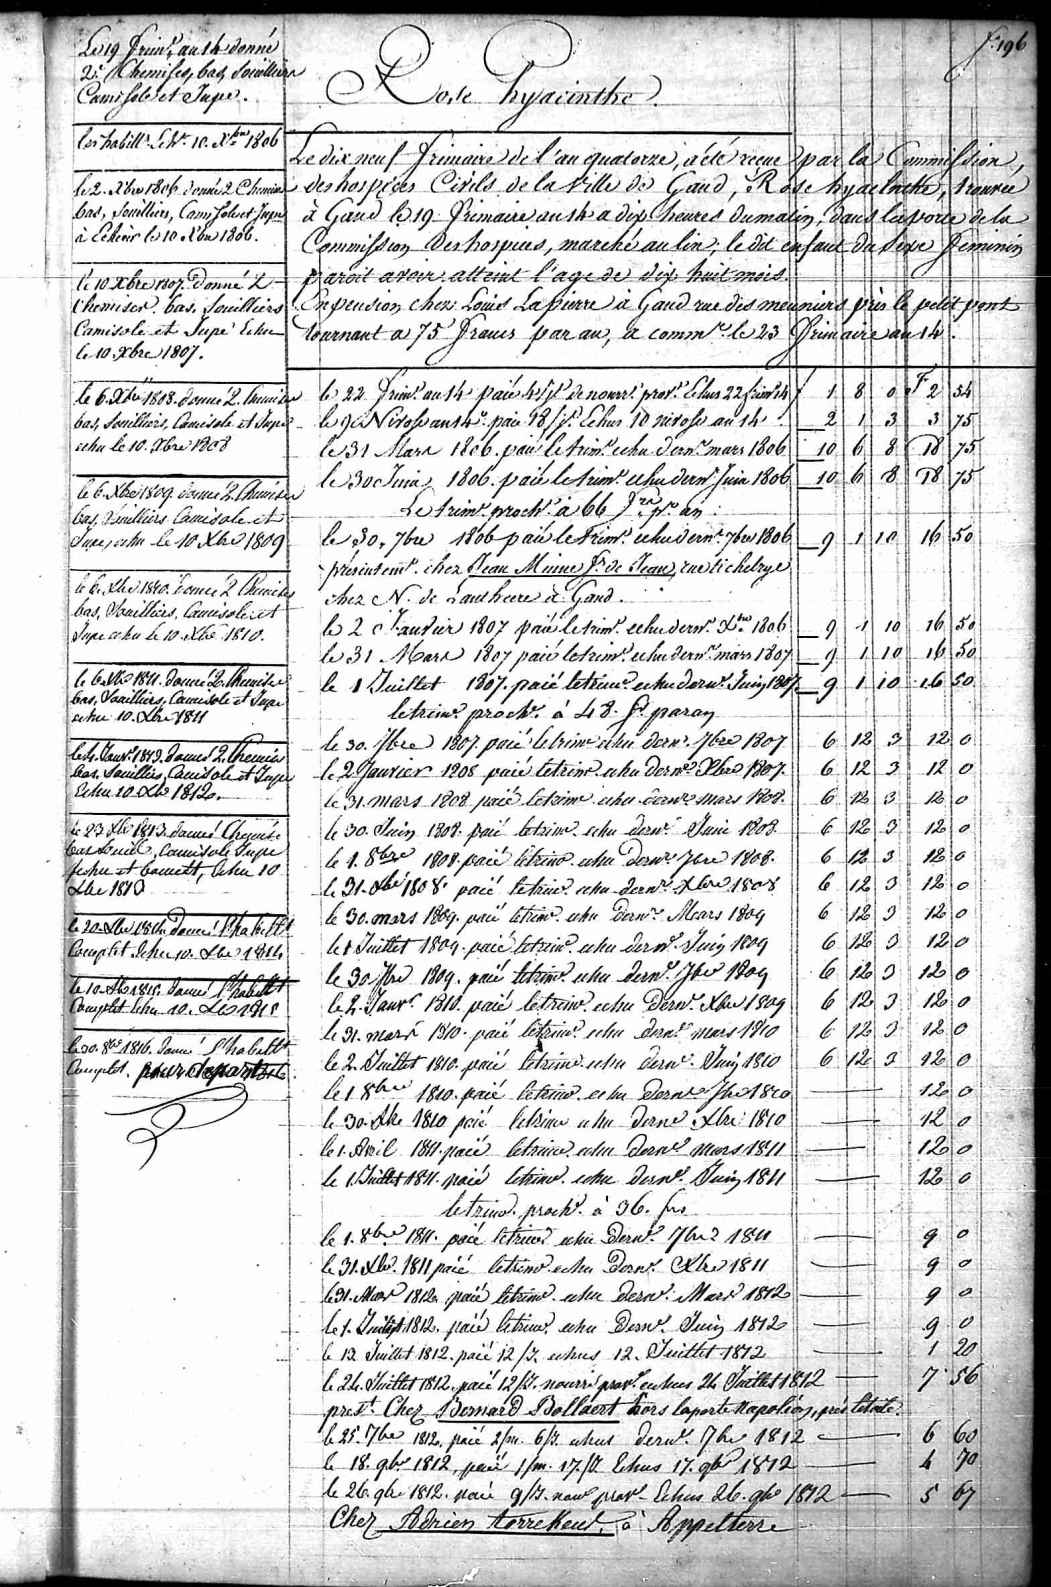 f. 196
Rose hyacinthe.
Le 19 frim.e an 14 donné
2. Chemises, bas, Souilliers
Camisole et Jupe.
les habill.s Echt. 10. Xbre 1806
le 2. Xbre 1806 donné 2 Chemises
bas, Souilliers, Camisole et Jupe
à Echoir le 10. Xbre 1806.
le 10 Xbre 1807. Donné 2
Chemises. bas. Souilliers
Camisole et Jupe Echu
le 10. Xbre 1807.
le 6. Xbre 1808. donné 2. Chemises
bas, Souilliers, Camisole et Jupe
echu le 10. Xbre 1808
le 6. Xbre 1809. donné 2. Chemises
bas, Souilliers Camisole et
Jupe, echu le 10 Xbre 1809
le 6. Xbre 1810. donné 2 Chemises
bas, Souilliers, Camisole et
Jupe echu le 10. Xbre 1810.
le 6 Xbre 1811. donné 2. Chemises
bas, Souilliers, Camisole et Jupe
echu 10. Xbre 1811
le 4. Janv. 1813. donné 2. Chemises
bas. Souilliers, Camisole et Jupe
Echu 10. Xbre 1812.
le 23 Xbre 1813. donné Chemise
bas Souil, Camisole Jupe
fichu et bonnett, Echu 10
Xbre 1813
le 20. Xbre 1814. donné l'habillt
Complet Echu 10. Xbre 1814
le 10. Xbre 1815. donné l'habillt
Complet Echu 10. Xbre 1815
le 30. 8bre 1816. donné l'habillt
Complet. pour départ
Le dix neuf frimaire de l'an quatorze, a été recue par la Commission,
des hospices Civils de la Ville de Gand, Rose hyacinthe, trouvée
à Gand le 19. frimaire an 14 a dix heures du matin, dans la porte de la
Commission des hospices, marché au lin, le dit enfant du sexe feminin
paroit avoir atteint l'age de dix huit mois.
En pension chez Louis Lapierre à Gand rue des meuniers près le petit pont
tournant a 75 francs par an, a comm.r le 23 frimaire an 14.
le 22 frim.e an 14 paié 4/j.s de nourr.e prov.e Echus 22 frim.e 14 £ 1 8 0 F 2 54
le 9 Nivose an 14. paié 18/j.s Echus 10 nivose an 14 2 1 3 3 75
le 31 Mars 1806. paié le trim.e echu dern.r mars 1806 10 6 8 18 75
le 30 Juin 1806. paié le trim.e echu dern.r Juin 1806 10 6 8 18 75
Le trim.e proch.n à 66 frs pr. an
le 30. 7bre 1806 paié le trim.e echu dern.r 7bre 1806 9 1 10 16 50
présentemt. chez Jean Minne fs. de Jean, rue
chez N. de à Gand.
le 2 Janvier 1807 paié le trim.e echu dern.r Xbre 1806 9 1 10 16 50
le 31 Mars 1807 paié le trim.e echu dern.r mars 1807 9 1 10 16 50
le 1 Juillet 1807. paié le trim.e echu dern.r Juin 1807 9 1 10 16 50
le trim.e proch.n à 48. fs. par an
le 30. 7bre 1807. paié le trim.e echu dern.r 7bre 1807 6 12 3 12 0
le 2 Janvier 1808 paié le trim.e echu dern.r Xbre 1807. 6 12 3 12 0
le 31. mars 1808 paié le trim.e echu dern.r mars 1808. 6 12 3 12 0
le 30. Juin 1808. paié le trim.e echu dern.r Juin 1808 6 12 3 12 0
le 1. 8bre 1808. paié le trim.e echu dern.r 7bre 1808. 6 12 3 12 0
le 31. Xbre 1808. paié le trim.e echu dern.r Xbre 1808 6 12 3 12 0
le 30. mars 1809. paié le trim.e echu dern.r Mars 1809 6 12 3 12 0
le 1 Juillet 1809. paié le trim.e echu dern.r Juin 1809 6 12 3 12 0
le 30. 7bre 1809. paié le trim.e echu dern.r 7bre 1809 6 12 3 12 0
le 2. Janv.r 1810. paié le trim.e echu dern.r Xbre 1809 6 12 3 12 0
le 31. mars 1810. paié le trim.e echu dern.r mars 1810 6 12 3 12 0
le 2. Juillet 1810. paié le trim.e echu dern.r Juin 1810 6 12 3 12 0
le 1 8bre 1810. paié le trim.e echu dern.r 7bre 1810 12 0
le 30. Xbre 1810 paié le trim.e echu dern.r Xbre 1810 12 0
le 1. Avril 1811. paié le trim.e echu dern.r mars 1811 12 0
le 1. Juillet 1811. paié le trim.e echu dern.r Juin 1811 12 0
le trim.e proch.n à 36. frs
le 1. 8bre 1811. paié le trim.e echu dern.r 7bre 1811 9 0
le 31. Xbre. 1811 paié le trim.e echu dern.r Xbre 1811 9 0
le 31. Mars 1812. paié le trim.e echu dern.r Mars 1812 9 0
le 1. Juillet 1812. paié le trim.e echu dern.r Juin 1812 9 0
le 12 Juillet 1812. paié 12/j. echus 12. Juillet 1812 1 20
le 24. Juillet 1812. paié 12/j. nourr.e prov.e echus 24 Juillet 1812 7 56
prest. Chez Bernard Bollaert hors la porte Napoléon, près l'étoile.
le 25. 7bre 1812. paié 2/m. 6/j. echus dern.r 7bre 1812 6 60
le 18. 9bre 1812 paié 1/m. 17./j. Echus 17. 9bre 1812 4 70
le 26. 9bre 1812. paié 9/j. nourr prov.e Echus 26. 9bre 1812 5 67
Chez Adrien à Appelterre